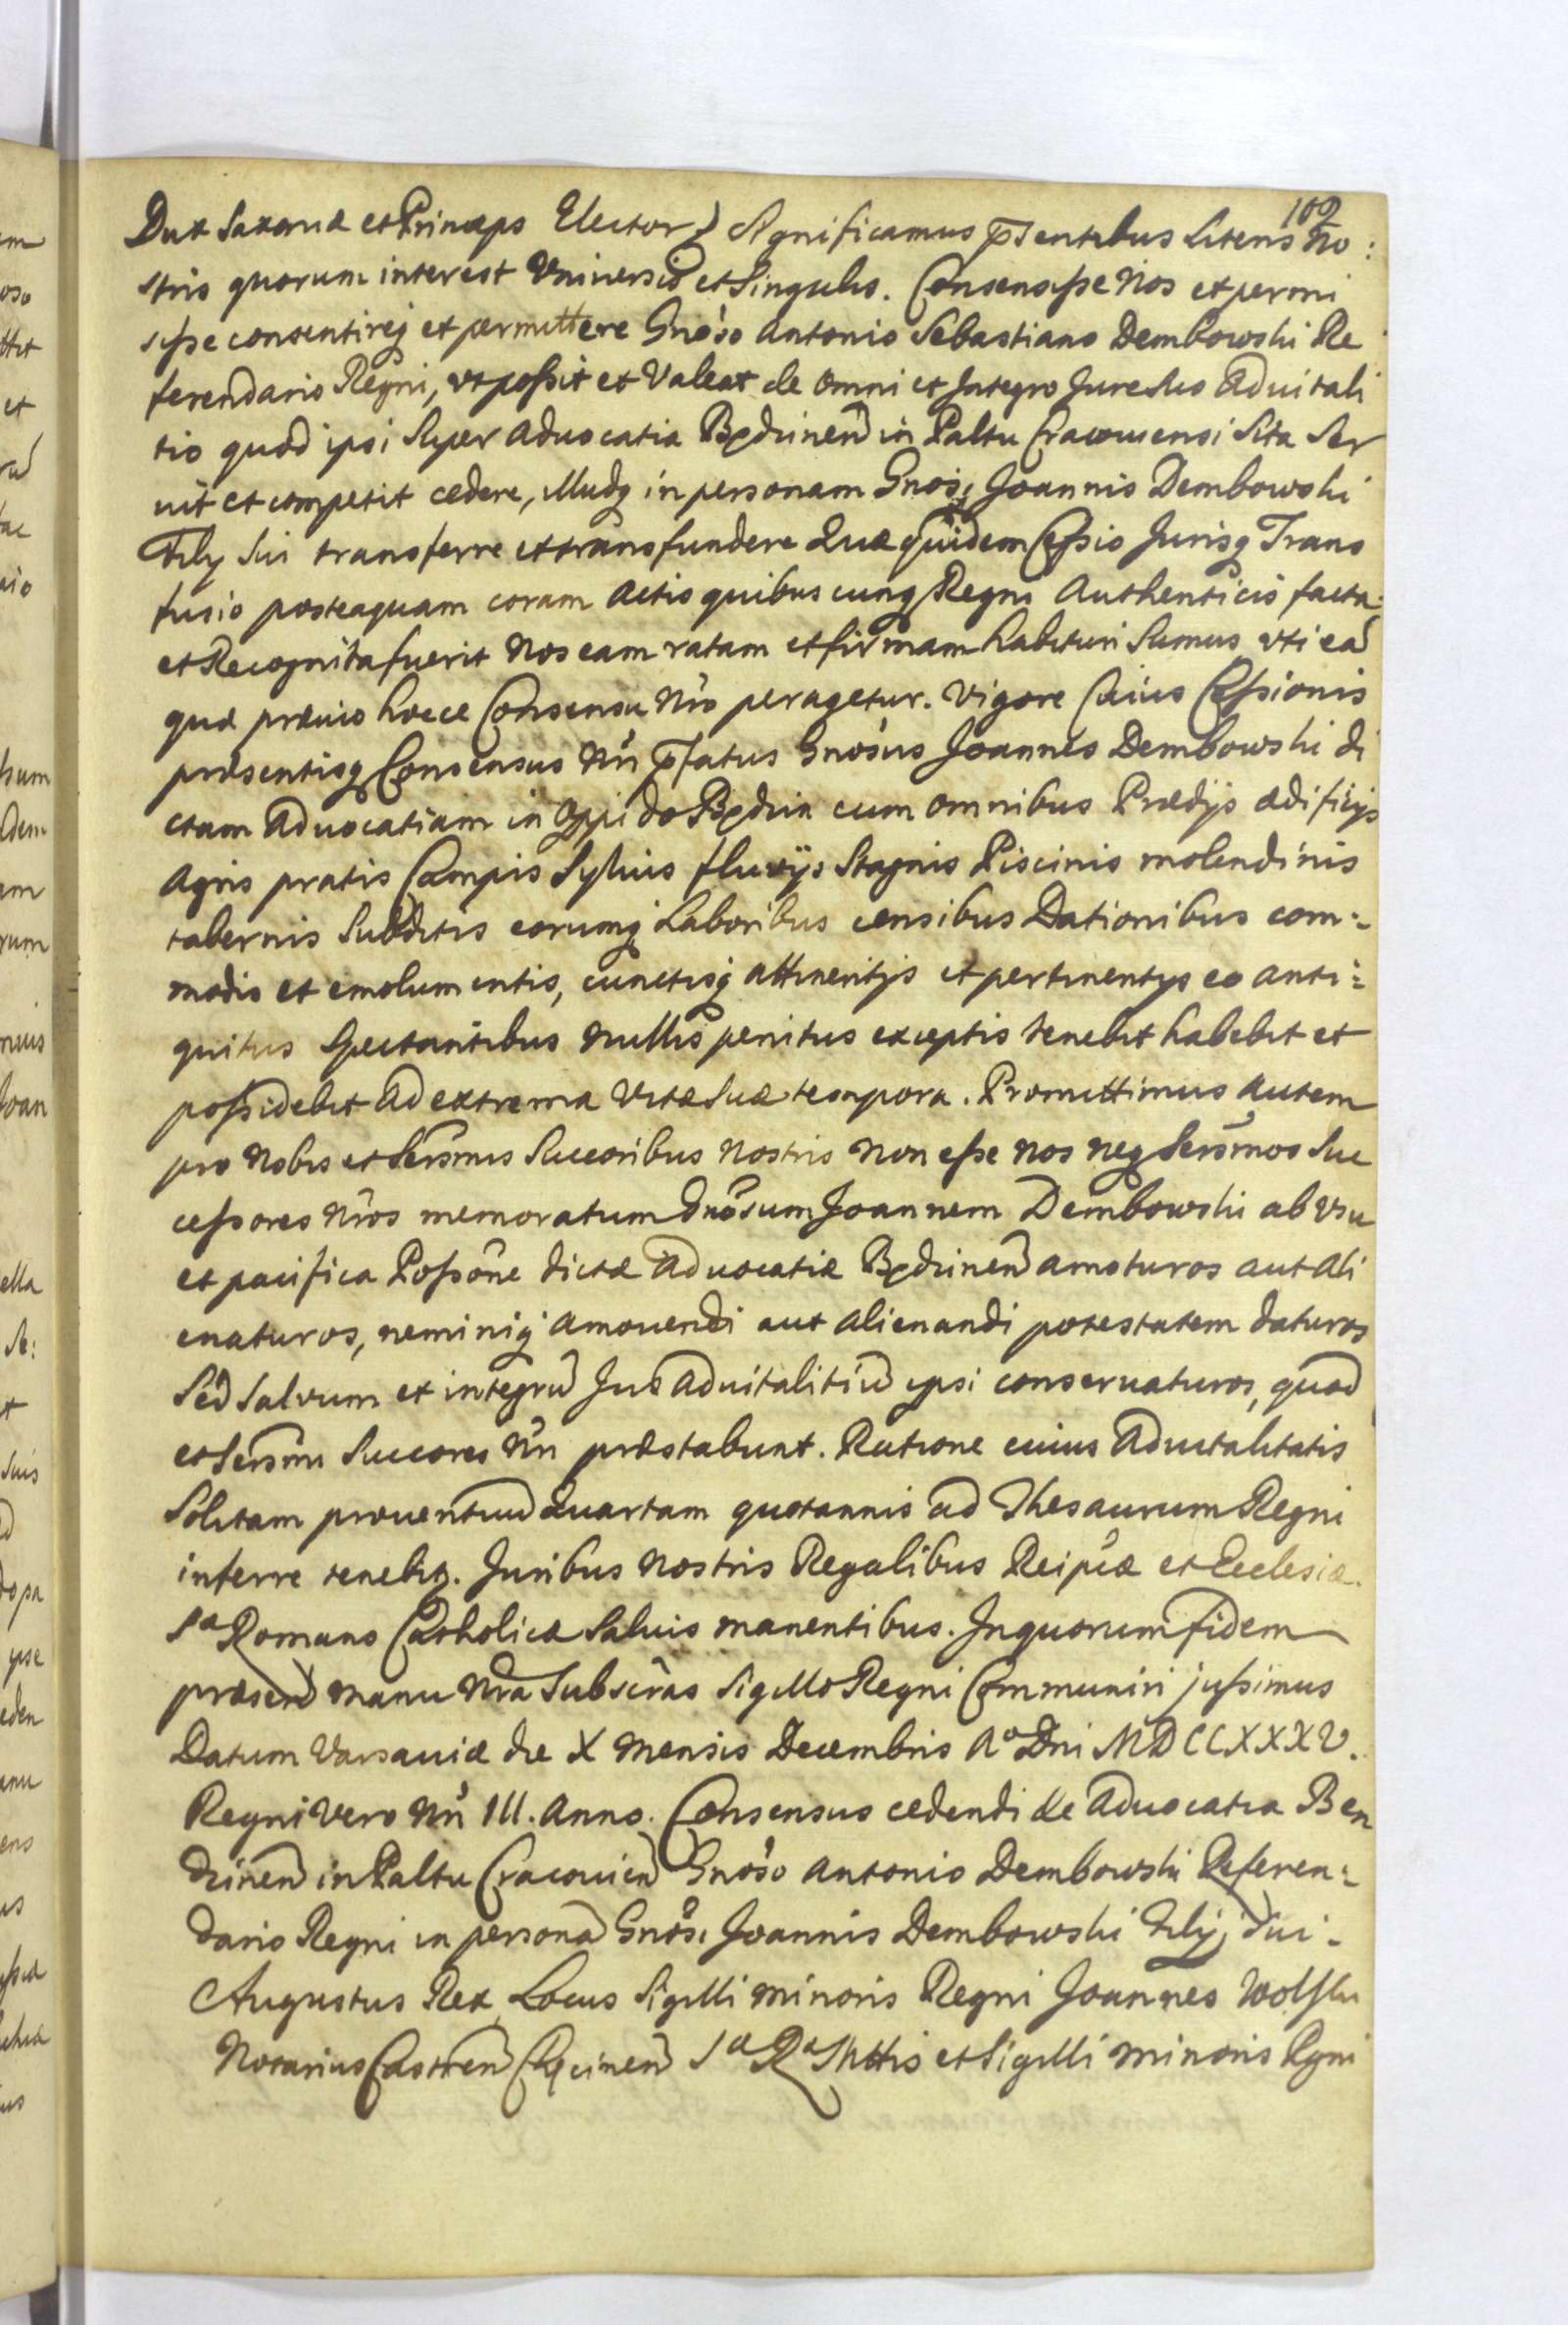 109
Dux Saxoniæ et Princeps Elector) Significamus p̄sentibus Literis No:
stris quorum interest Vniversis et Singulis. Consensisse Nos et permi
sisse consentireq et permittere Gnoso Antonio Sebastiano Dembowski Re
ferendario Regni, vt possit et Valeat de omni et Integro Jure suo Aduitali
tio quod ipsi super Aduocatia Będzinen in Paltu Cracouiensi Sita Ser
uit et competit cedere, illudq in personam Gnosi Joannis Dembowski
Filÿ Sui transferre et transfundere Quæ quidem Cessio Jurisq Trans
fusio posteaquam coram Actis quibus cunq Regni Authenticis facta
et Recognita fuerit Nos eam ratam et firmam habituri Sumus vti ea
quæ præuio hocce Consensu Nro peragetur. Vigore Cuius Cessionis
præsentisq Consensus Nri p̄fatus Gnosus Joannes Dembowski di
ctam Aduocatiam in Oppido Będzin cum omnibus Prædÿs ædificÿs
Agris pratis Campis Syluis fluvÿs Stagnis Piscinis molendinis
tabernis Subditis eorumq Laboribus censibus Dationibus com:
modis et emolumentis, cunctisq attinentÿs et pertinentÿs eo anti:
quitus Spectantibus Nullis penitus exceptis tenebit habebit et
possidebit ad extrema Vitæ Suæ tempora. Promittimus autem
pro Nobis et Sersmis Succoribus Nostris Non esse nos neq Sersmos Suc
cessores Nros memoratum Gnosum Joannem Dembowski ab Vsu
et pacifica Possone dictæ Aduocatiæ Będzinen amoturos aut Ali
enaturos, neminiq amouendi aut alienandi potestatem daturos
Sed Salvum et integru Jus Aduitalitiu ipsi conseruaturos, quod
et Sersmi Succores Nri præstabunt. Ratione cuius Aduitalitatis
Solitam prouentuu Quartam quotannis ad Thesaurum Regni
inferre tenebit. Juribus Nostris Regalibus Reipcæ et Ecclesiæ
Sæ Romano Catholicæ Saluis manentibus. In quorum fidem
præsen manu Nra Subscras Sigillo Regni Communiri jussimus
Datum Varsauiæ die X Mensis Decembris Ao Dni MDCCXXXV.
Regni Vero Nri III. Anno. Consensus cedendi de Aduocatia Ben
dzinen in Paltu Cracouien Gnoso Antonio Dembowski Referen:
dario Regni in persona Gnosi Joannis Dembowski Filÿ Sui.
Augustus Rex Locus Sigilli minoris Regni Joannes Wolski
Notarius Castren Chęcinen Sæ Ræ Mttis et Sigilli minoris Rgni